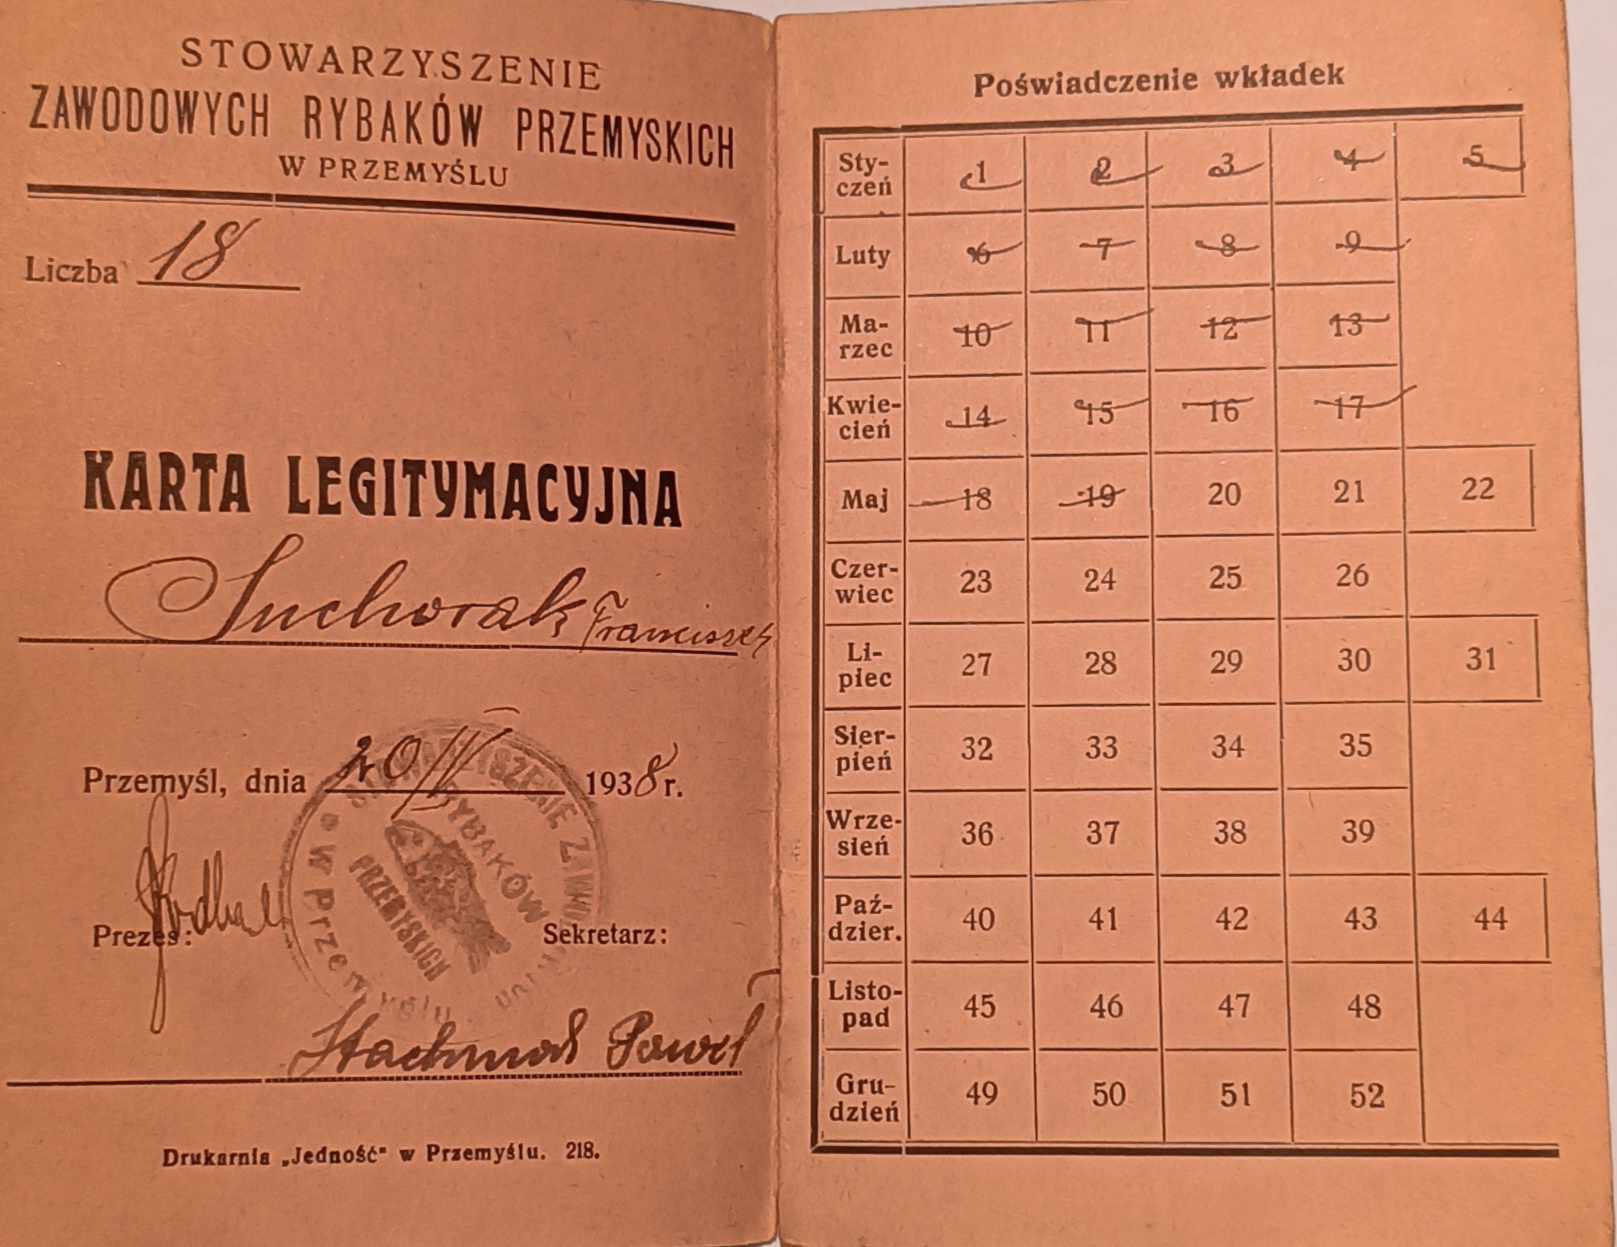 STOWARZYSZENIE
ZAWODOWYCH RYBAKÓW PRZEMYSKICH
W PRZEMYŚLU
Liczba 18
KARTA LEGITYMACYJNA
Suchorak Franciszek
Przemyśl, dnia 20/IV 1938 r.
Prezes: Sekretarz:
STOWARZYSZENIE ZAWOD.
RYBAKÓW
PRZEMYSKICH
w Przemyślu
Pawel
Drukarnia „Jedność" w Przemyślu. 218.
Poświadczenie wkładek
Sty-
czeń 1 2 3 4 5
Luty 6 7 8 9
Ma-
rzec 10 11 12 13
Kwie-
cień 14 15 16 17
Maj 18 19 20 21 22
Czer-
wiec 23 24 25 26
Li-
piec 27 28 29 30 31
Sier-
pień 32 33 34 35
Wrze-
sień 36 37 38 39
Paź-
dzier. 40 41 42 43 44
Listo-
pad 45 46 47 48
Gru-
dzień 49 50 51 52